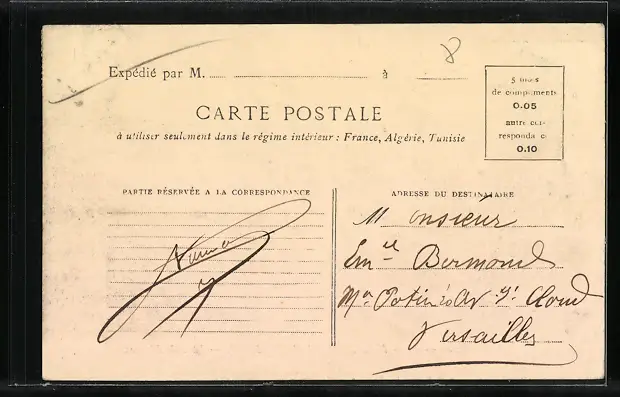 8
Expédié par M. à
CARTE POSTALE
à utiliser seulement dans le régime intérieur : France, Algérie, Tunisie
5 mots
de compliments
0.05
autre cor-
respondance
0.10
PARTIE RÉSERVÉE A LA CORRESPONDANCE
ADRESSE DU DESTINATAIRE
Monsieur
Em^le Bermond
M^on Potin Av S^t Cloud
Versailles